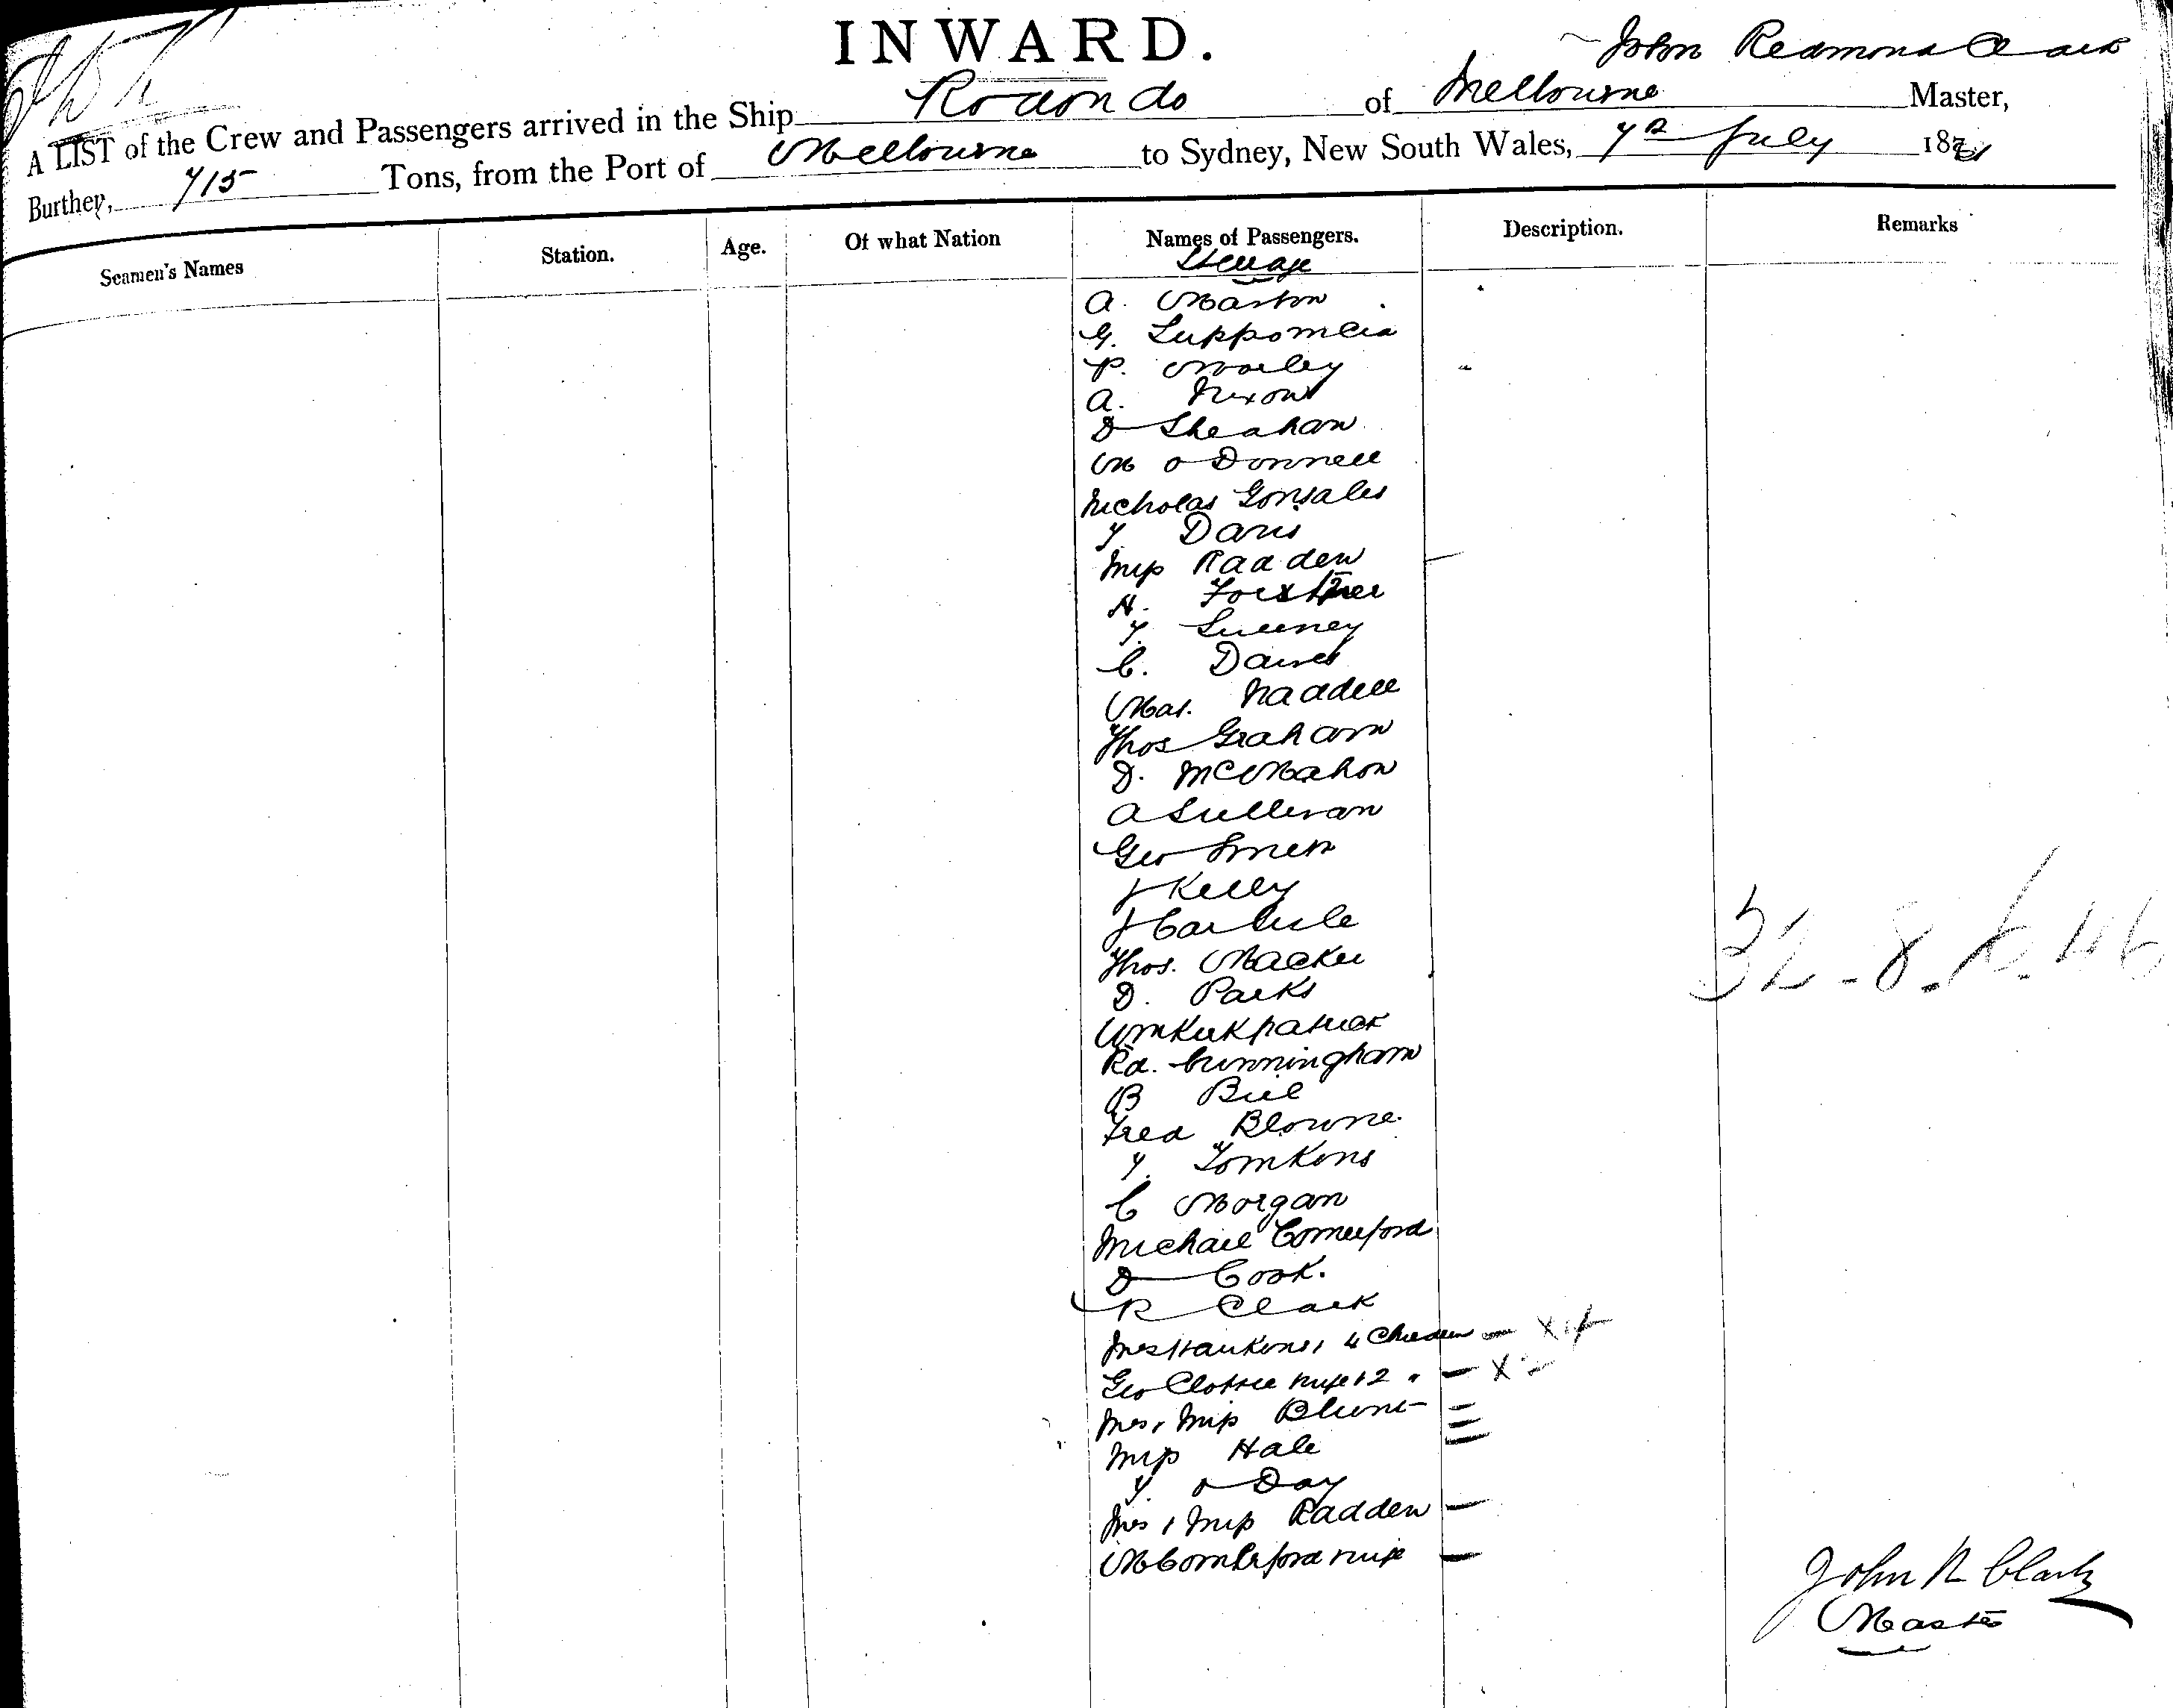 INWARD.
John Redmond Clark
A LIST of the Crew and Passengers arrived in the Ship Rodondo of Melbourne Master,
Burthen, 715 Tons, from the Port of Melbourne to Sydney, New South Wales, 7th July 18
Seamen's Names Station. Age. Of what Nation Names of Passengers. Description. Remarks
Steerage
A. Marton
G. Luppomcia
P. Morley
A. Nixon
D Sheahan
M O Donnell
Nicholas Gonsales
T Davis
Miss Radden
H.
T. Sweeney
C. Davies
Mar. Naddell
Thos Graham
D. McMahon
A Sullivan
Geo Smith
J Kelly
J Carlisle
Thos. Mackee
D. Parks
Wm Kirkpatrick
Rd. Cunningham
B Bill
Fred Blowne
T. Tomkins
C Morgan
Michael Comerford
D Cook.
R Clark
Mrs Hankins, 4 Children - X 4
Geo wife & 2 " - X 2
Mrs & Miss Blunt -
Miss Hale
T. O Day
Mrs & Miss Radden -
M Comerford wife -
32 - 8. 46
John R Clark
Master